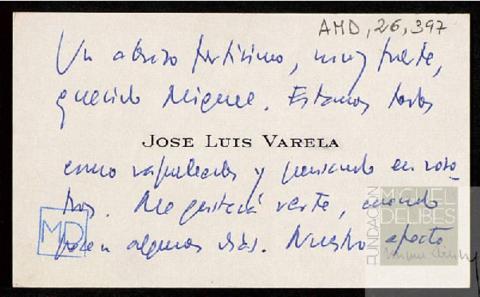 AMD, 26, 397
Un abrazo fortísimo, muy fuerte,
querido Miguel. Estamos todos
JOSE LUIS VARELA
como vapuleados y pensando en voso
tros. Me gustará verte, cuando
pasen algunos días. Nuestro afecto
MD
FUNDACIÓN
MIGUEL
DELIBES